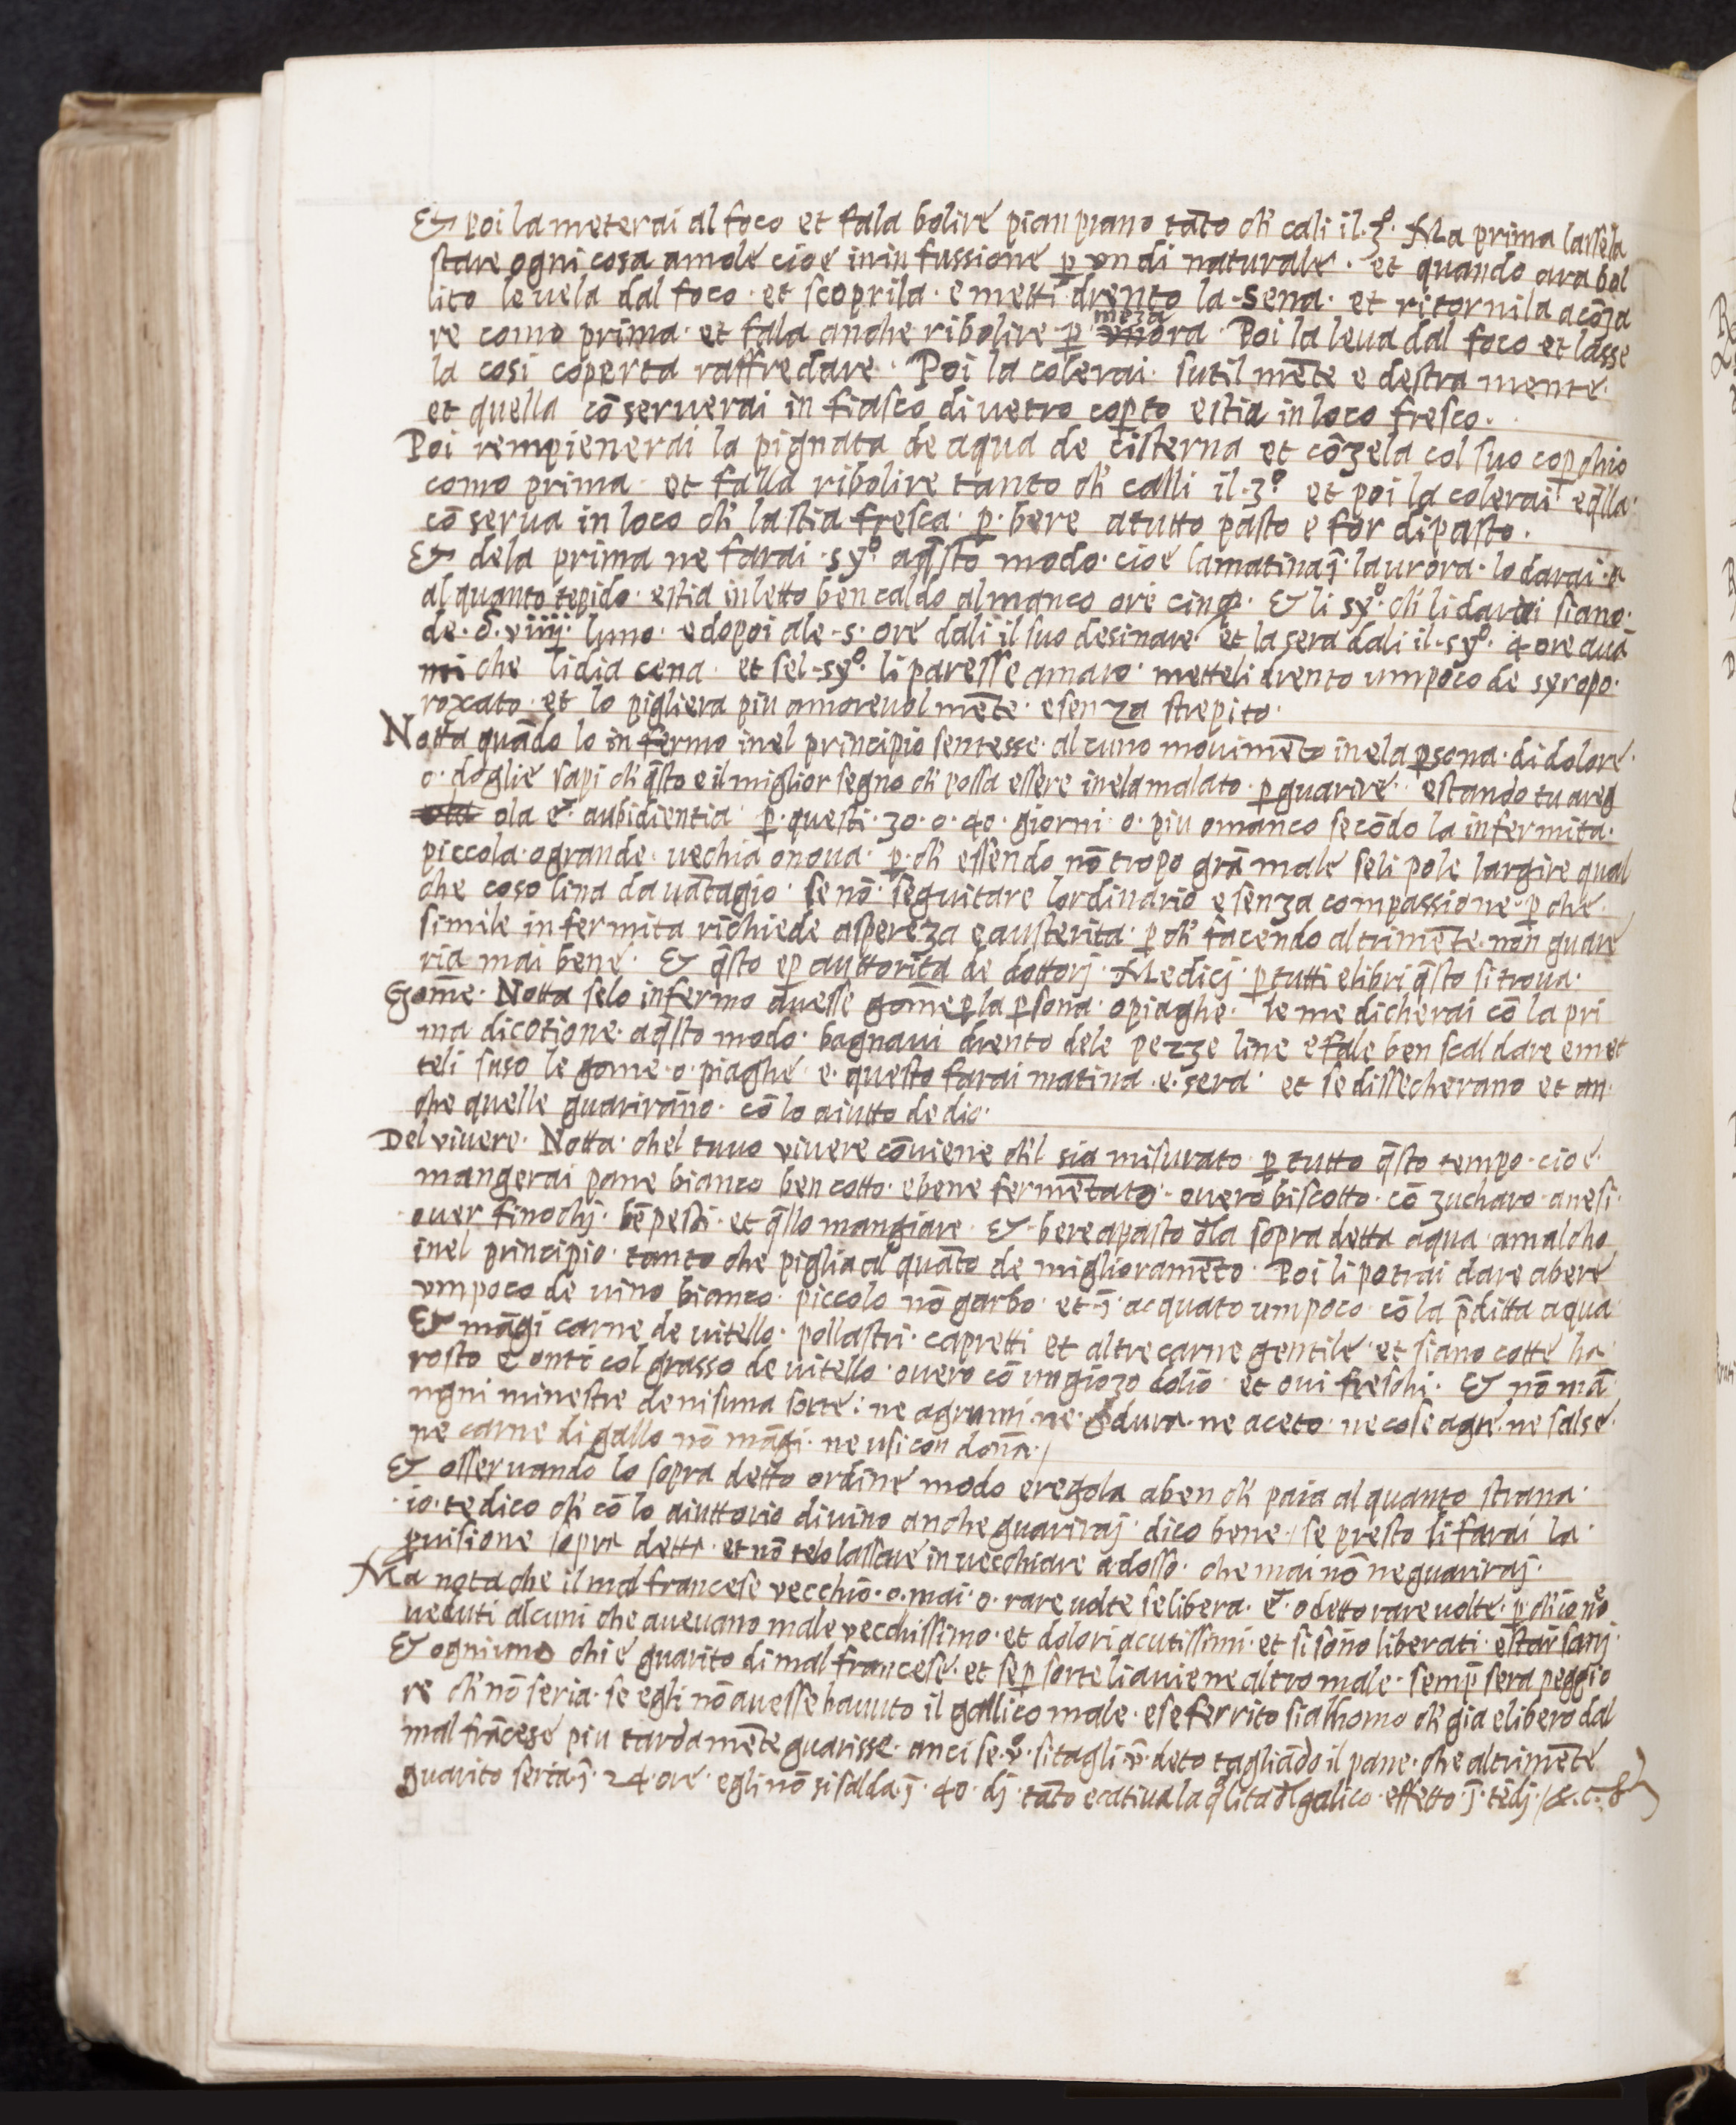 Et poi la meterai al foco et fala bolire pian piano tãto ch' cali il .3º. Ma prima lassela
stare ogni cosa amole cioe inin fussione ꝑ un di naturale · et quando ara bol
lito levela dal foco · et scoprila · e metti drento la · sena · et ritornila acõza
re como prima · et fala anche ribolire · ꝑ meza unora · Poi la leva dal foco et lasse
la cosi coperta raffredare · Poi la colerai · sutil mẽte e destra mente ·
et quella cõ serverai in fiasco di vetro coꝑto estia in loco fresco ·
Poi rempienerai la pignata de aqua de cisterna et cõzela col suo coꝑchio
como prima · et falla ribolire tanto ch' calli il · 3º et poi la colerai eq̃lla ·
cõ serva in loco ch' la stia fresca · ꝑ · bere atutto pasto e for di pasto ·
Et dela prima ne farai · syº aq̃sto modo · cioe la matina j̃ · laurora · lo darai ·
al quanto tepido · estia in letto ben caldo almanco ore cinq̃ · Et li syº · ch' li darai siano ·
de · õ · viiij · luno · e dopoi ale · 5 · ore dali il suo desinare · et la sera dali il · syº · 4 ore avã
mi che li dia cena · et sel · syº · li paresse amaro · metteli drento umpoco de syropo ·
roxato · et lo pigliera piu amorevol mẽte · e senza strepito ·
Notta quãdo lo in fermo inel principio sentesse · alcuno movimẽto inela ꝑsona · di dolore ·
o · doglie sapi ch' q̃sto e il miglior segno ch' possa essere inela malato · ꝑ guarire · estando tu areg
ola ola e · aubidientia · ꝑ · questi · 30 · o · 40 · giorni · o · piu omanco secõdo la infermita ·
piccola · ogrande · vechia onova · ꝑ · ch' essendo nõ tropo grã male seli pole largire qual
che coso lina da vãtagio · se nõ · seguitare lordinario e senza compassione · ꝑ che ·
simile in fermita richiede aspereza e austerita · ꝑ ch' facendo altrimẽte · non guare
ria mai bene · Et q̃sto eꝑ auttorita de dottorj · Medicj · ꝑ tutti e libri q̃sto si trova ·
Gom̃e · Notta selo infermo avesse gom̃e ꝑ la ꝑsona · opiaghe · le me dicherai cõ la pri
ma dicotione · aq̃sto modo · bagnavi drento dele pezze line e fale ben scaldare e met
teli suso le gome · o · piaghe · e · questo farai matina · e · sera · et se dissecherano et an
che quelle guarirano · cõ lo aiutto de dio ·
Del vivere · Notta · chel tuuo vivere cõviene ch'l sia misurato · ꝑ tutto q̃sto tempo · cioe ·
mangerai pane bianco ben cotto · ebene fermẽtato · overo biscotto · cõ zucharo · anesi ·
over finochj · bẽ pesti · et q̃llo mangiare · Et · bere apasto d̃la sopra detta aqua · amalcho
inel principio · tanto che piglia al quãto de miglioramẽto · Poi li potrai dare abere
umpoco de vino bianco · piccolo nõ garbo · et · j̃ · acquato umpoco · cõ la p̃ditta aqua ·
Et mãgi carne de vitello · pollastri · capretti et altre carne gentile · et siano cotte ha ·
rosto e onti col grasso de vitello · overo cõ un giozo dolio · et ovi freschi · Et nõ mã
ngni minestre de nisuna sorte : ne agrumi · ne · dura · ne aceto · ne cose agre · ne salse ·
ne carne di gallo nõ mãgi · ne usi con donña · /
Et osservando lo sopra detto ordine modo eregola aben ch' paia al quanto strana ·
· io · te dico ch' cõ lo aiuttorio divino anche guarirai · dico bene · / se presto li farai la ·
ꝓvisione sopra detta · et nõ telo lassare invecchiare adosso · che mai nõ ne guarirai ·
Ma nota che il mal francese vecchio · o · mai · o · rare volte se libera · e · o detto rare volte · ꝑ ch' io nõ
veduti alcuni che avevano male vecchissimo · et dolori acutissimi · et si sono liberati · e star sanj ·
Et ogniuno chi e guarito di mal francese · et se ꝑ sorte li aviene altro male · semp̃ sera peggio
re ch' nõ seria · se egli nõ avesse havuto il gallico male · e se ferrito sia lhomo ch' gia e libero dal
mal frãcese piu tarda mẽte guarisse · anci se · sitagli · deto tagliãdo il pane · che altrimẽte
guarito seria · j̃ · 24 · ore · egli nõ si salda · j̃ · 40 · dj · tãto e cativa la q̃lita d̃l galico · effetto · j̃ · tẽdj · /&.c.